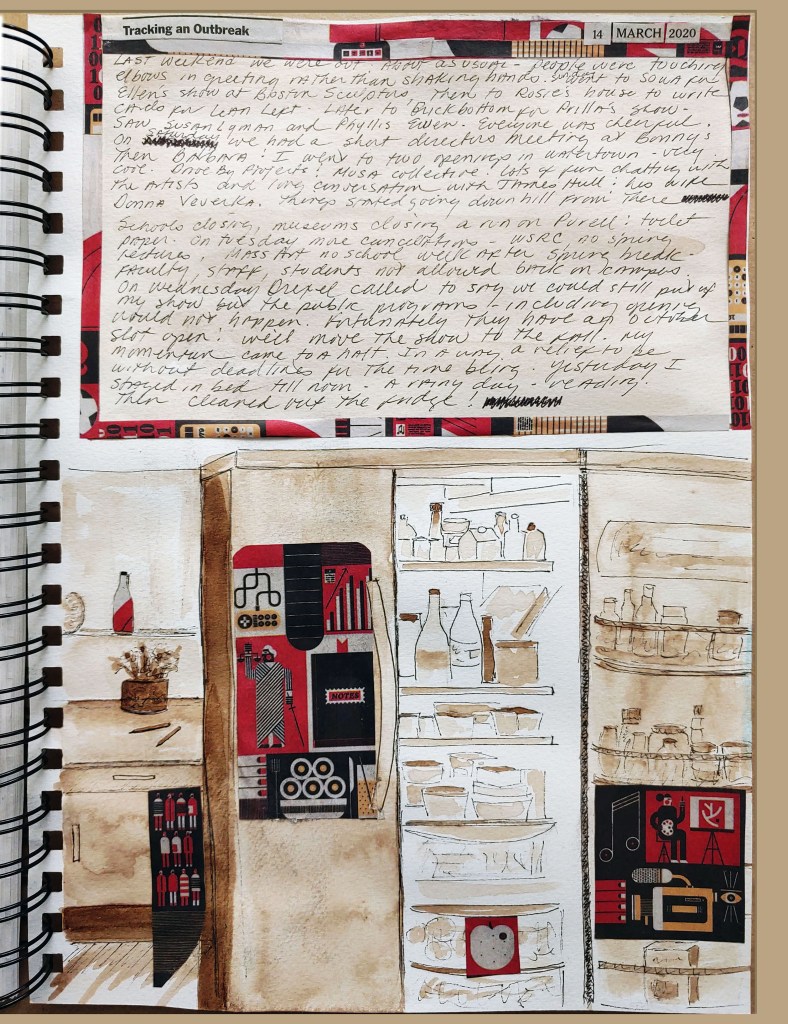 Tracking an Outbreak
14 MARCH 2020
LAST Weekend we were out + About as usual - people were touching
elbows in greeting rather than shaking hands. Went to SOWA for
Ellen's show at Boston Sculptors, Then to Rosie's house to write
cards for Lean Left. Later to Brickbottom for Prilla's show -
SAW SUSAN Lyman and Phyllis Ewen. Everyone was cheerful.
On we had a short directors meeting at Bonny's
Then BARBARA + I went to two openings in Watertown - very
cool. Drive By Projects + MOSA collective. Lots of fun chatting with
the Artists and long conversation with James Hull + his wife
Donna Veverka. Things started going down hill from There
Schools closing, museums closing, a run on Purell + toilet
paper. On Tuesday more cancellations - WSRC, no spring
lectures, MASS Art no school week After Spring break -
Faculty, staff, students not allowed back on campus.
On Wednesday Drexel called to say we could still put up
my show but the public programs - including opening
would not happen. Fortunately They have an October
slot open! We'll move the show to the fall. My
momentum came to A halt. In A way, a relief to be
without deadlines for The time being. Yesterday I
stayed in bed till noon - A rainy day - reading.
Then cleaned out the fridge!
NOTES